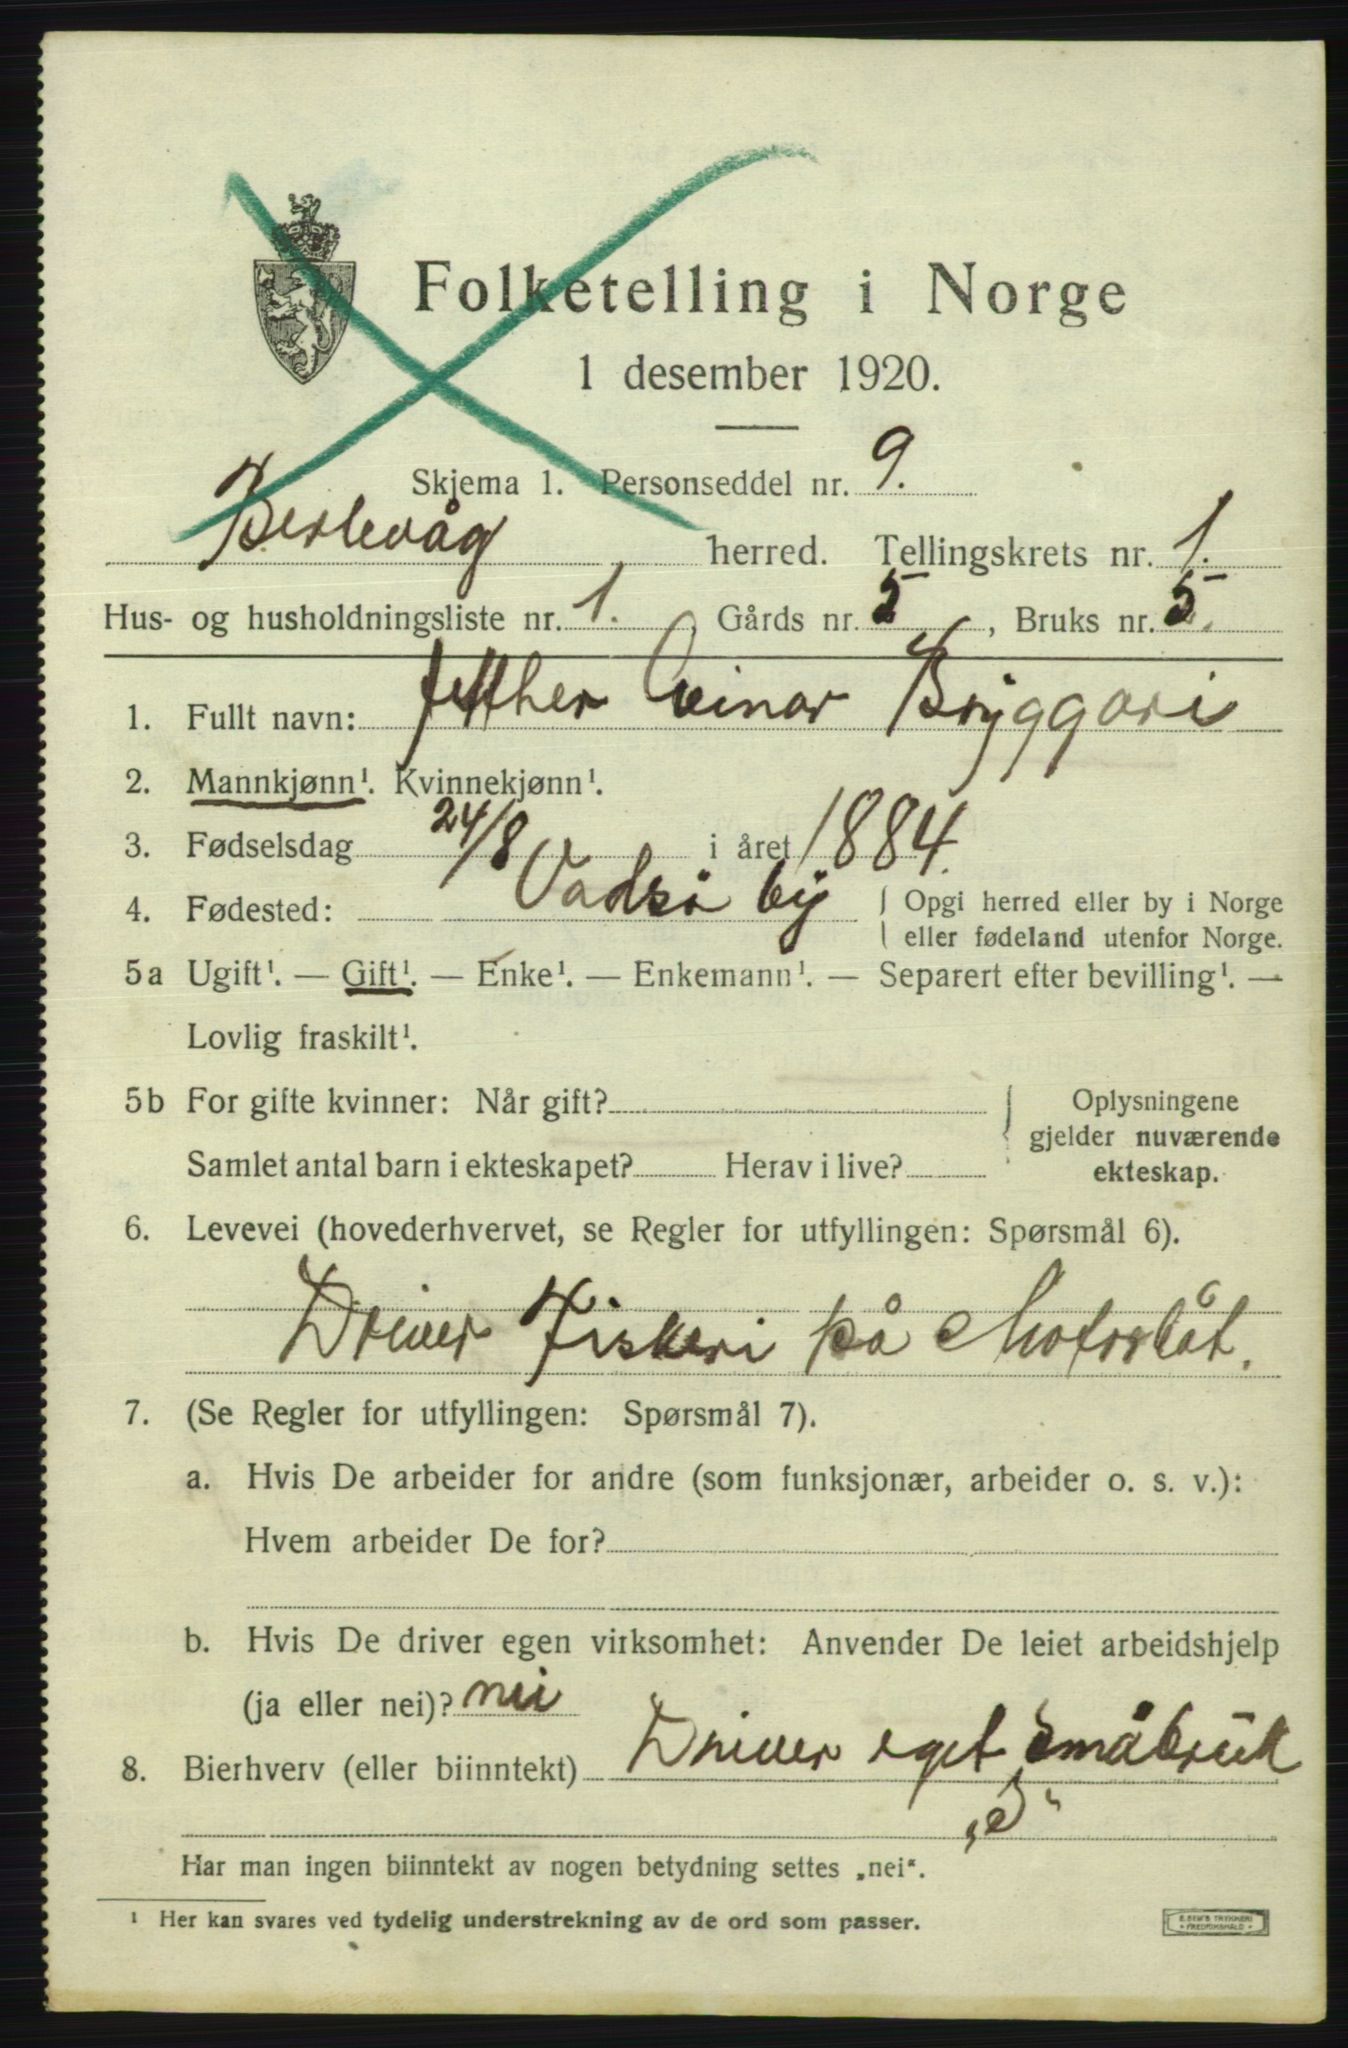 Folketelling i Norge
1 desember 1920.
Skjema 1. Personseddel nr. 9.
Berlevåg herred. Tellingskrets nr. 1.
Hus- og husholdningsliste nr. 1. Gårds nr. 5, Bruks nr. 5.
1. Fullt navn: Einar Bryggari
2. Mannkjønn¹. Kvinnekjønn¹.
3. Fødselsdag 24/8 i året 1884.
4. Fødested: Vadsö by { Opgi herred eller by i Norge
eller fødeland utenfor Norge.
5a Ugift¹. — Gift¹. — Enke¹. — Enkemann¹. — Separert efter bevilling¹. —
Lovlig fraskilt¹.
5b For gifte kvinner: Når gift? { Oplysningene
gjelder nuværende
Samlet antal barn i ekteskapet? Herav i live? ekteskap.
6. Levevei (hovederhvervet, se Regler for utfyllingen: Spørsmål 6).
Driver Fiskeri på Motorbåt.
7. (Se Regler for utfyllingen: Spørsmål 7).
a. Hvis De arbeider for andre (som funksjonær, arbeider o. s. v.):
Hvem arbeider De for?
b. Hvis De driver egen virksomhet: Anvender De leiet arbeidshjelp
(ja eller nei)? nei
8. Bierhverv (eller biinntekt) Driver eget Småbruk
Har man ingen biinntekt av nogen betydning settes „nei“.
¹ Her kan svares ved tydelig understrekning av de ord som passer.